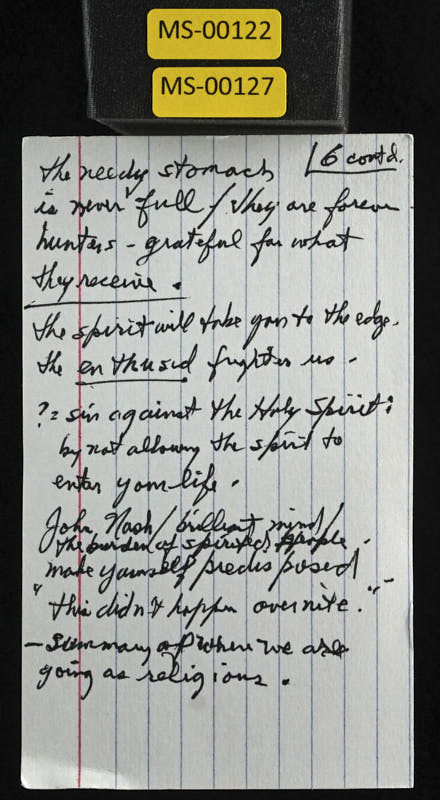 MS-00122
MS-00127
6 contd.
the needy stomach
is never full / they are forever
hunters - grateful for what
they receive.
the spirit will take you to the edge.
the enthused frighten us.
?= sin against the Holy Spirit:
by not allowing the spirit to
enter your life.
John Nash / brilliant mind /
the burden of spirited people.
make yourself predisposed
"this didn't happen overnite."
- summary of where we are
going as religious.